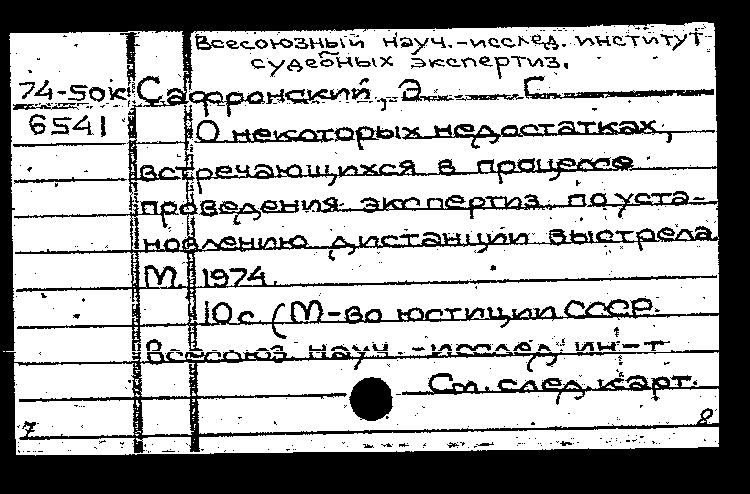 Всесоюзный науч.-исслед. институт
судебных экспертиз.
74-50к Сафронский, Э. Г.
6541 О некоторых недостатках,
встречающихся в процессе
проведения экспертиз по уста-
новлению дистанции выстрела
М. 1974.
10с (М-во юстиции СССР.
Всесоюз. науч.-исслед. ин-т
См. след. карт.
7 8